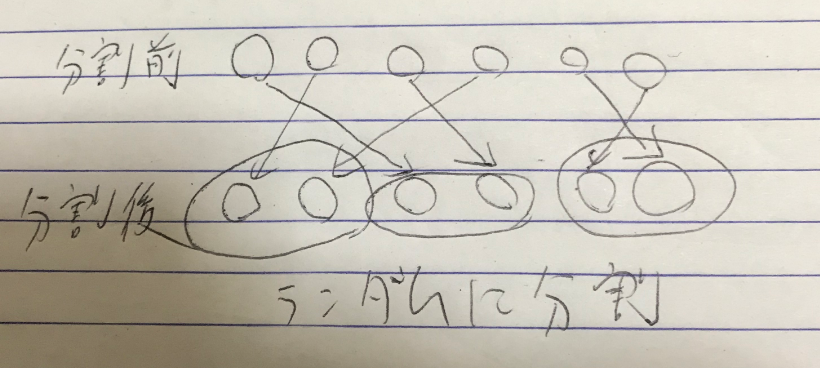 分割前
分割後
ランダムに分割